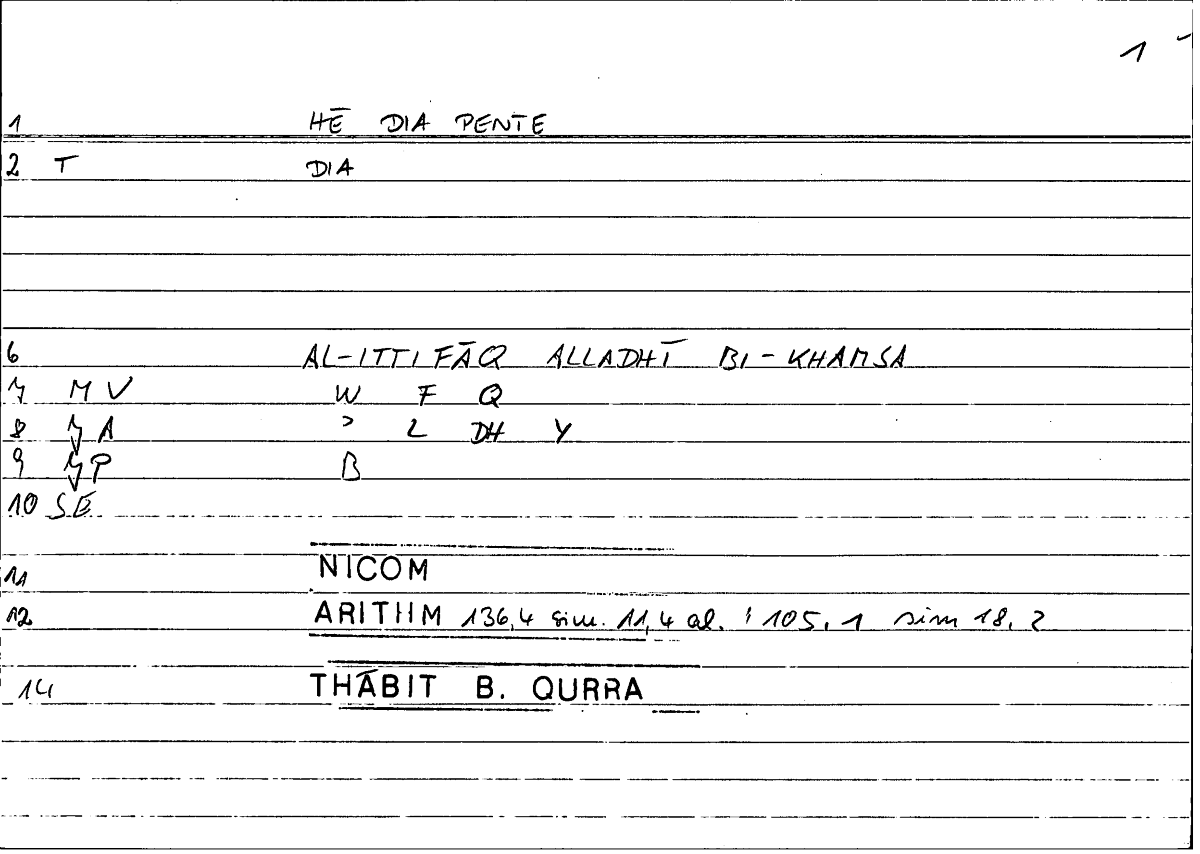 1
1 HĒ DIA PENTE
2 T DIA
6 AL-ITTIFĀQ ALLADHĪ BI-KHAMSA
7 M V W F Q
8 A ʾ L DH Y
9 P B
10 SE
11 NICOM
12 ARITHM 136,4 sim. 11,4 al. : 105,1 sim 18,2
14 THĀBIT B. QURRA